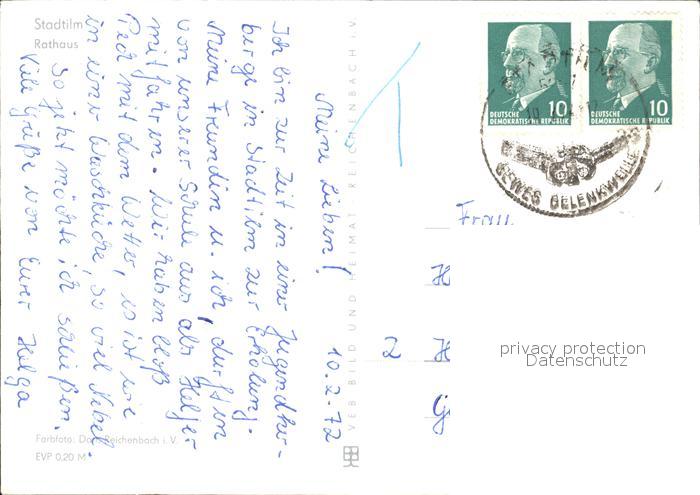 Stadtilm
Rathaus
Meine Lieben! 10.2.72
Ich bin zur Zeit in einer Jugendher-
berge in Stadtilm zur Erholung.
Meine Freundin u. ich, durften
von unserer Schule aus als Helfer
mitfahren. Wir haben bloß
Pech mit dem Wetter, es ist wie
in einer Waschküche, so viel Nebel.
So jetzt möchte ich schließen.
Viele Grüße von Eurer Helga
Farbfoto: Reichenbach i. V.
EVP 0,20 M
VEB BILD UND HEIMAT REICHENBACH i. V.
10
DEUTSCHE
DEMOKRATISCHE REPUBLIK
10
DEUTSCHE
DEMOKRATISCHE REPUBLIK
STADTILM
GEWES GELENKWELLE
Frau
H
2 H
G
privacy protection
Datenschutz